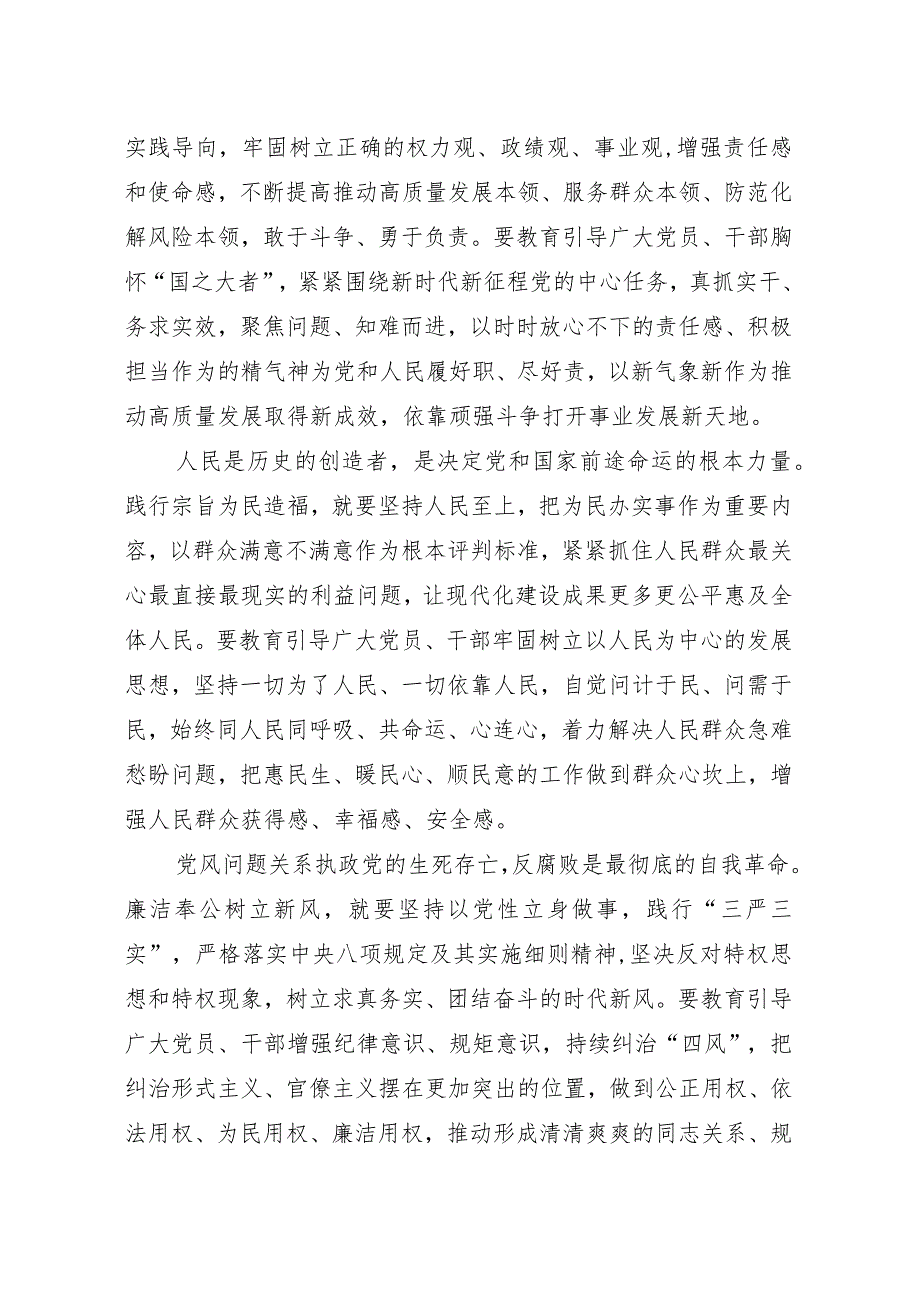 实践导向，牢固树立正确的权力观、政绩观、事业观,增强责任感
和使命感，不断提高推动高质量发展本领、服务群众本领、防范化
解风险本领，敢于斗争、勇于负责。要教育引导广大党员、干部胸
怀“国之大者”，紧紧围绕新时代新征程党的中心任务，真抓实干、
务求实效，聚焦问题、知难而进，以时时放心不下的责任感、积极
担当作为的精气神为党和人民履好职、尽好责，以新气象新作为推
动高质量发展取得新成效，依靠顽强斗争打开事业发展新天地。
人民是历史的创造者，是决定党和国家前途命运的根本力量。
践行宗旨为民造福，就要坚持人民至上，把为民办实事作为重要内
容，以群众满意不满意作为根本评判标准，紧紧抓住人民群众最关
心最直接最现实的利益问题，让现代化建设成果更多更公平惠及全
体人民。要教育引导广大党员、干部牢固树立以人民为中心的发展
思想，坚持一切为了人民、一切依靠人民，自觉问计于民、问需于
民，始终同人民同呼吸、共命运、心连心，着力解决人民群众急难
愁盼问题，把惠民生、暖民心、顺民意的工作做到群众心坎上，增
强人民群众获得感、幸福感、安全感。
党风问题关系执政党的生死存亡,反腐败是最彻底的自我革命。
廉洁奉公树立新风，就要坚持以党性立身做事，践行“三严三
实”，严格落实中央八项规定及其实施细则精神,坚决反对特权思
想和特权现象，树立求真务实、团结奋斗的时代新风。要教育引导
广大党员、干部增强纪律意识、规矩意识，持续纠治“四风”，把
纠治形式主义、官僚主义摆在更加突出的位置，做到公正用权、依
法用权、为民用权、廉洁用权，推动形成清清爽爽的同志关系、规